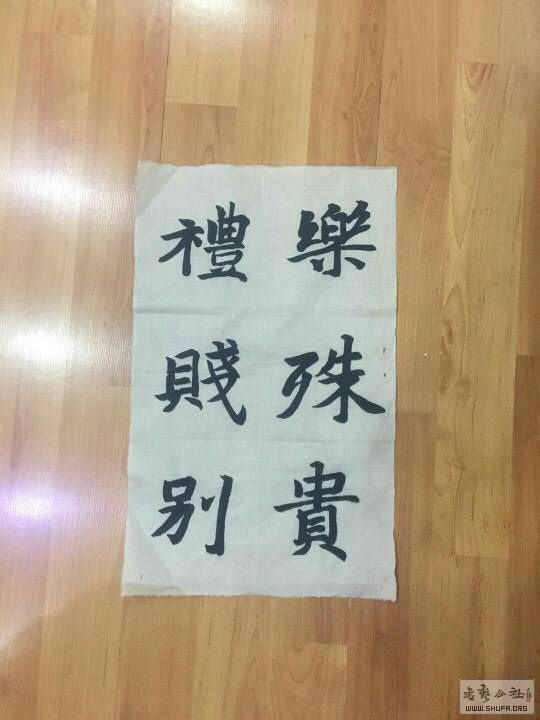 樂殊貴
禮賤别
书艺公社
WWW.SHUFA.ORG